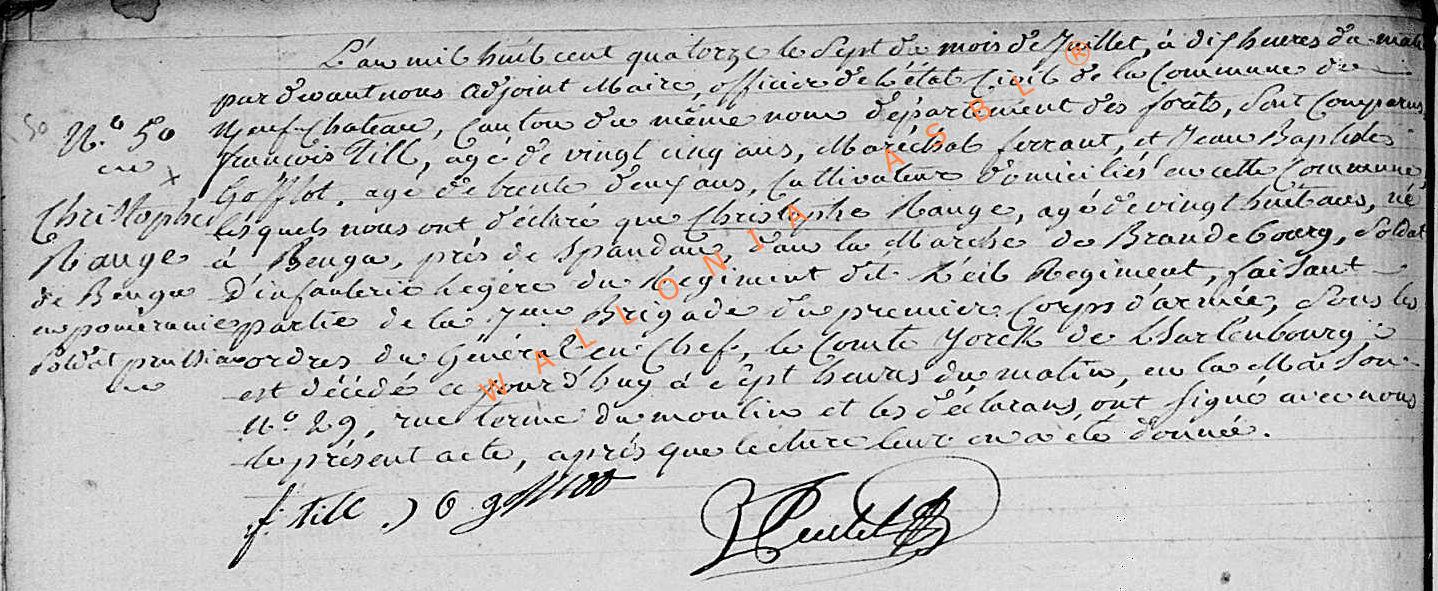 L'an mil huit cent quatorze le Sept du mois de Juillet, à dix heures du matin
par devant nous adjoint Maire, officier de l'état Civil de la Commune de
Neuf-Chateau, Canton du même nom département des forêts, Sont Comparus
françois Till, agé de vingt cinq ans, Maréchal ferrant, et Jean Baptiste
Gofflot, agé de trente deux ans, Cultivateur domiciliés en cette Commune
lesquels nous ont déclaré que Christophe Mauge, agé de vingt huit ans, né
à Benga, près de Spandau, dans la Marche de Brandebourg, Soldat
d'infanterie legére du Regiment dit Leib Regiment, faisant
partie de la 7eme Brigade du premier Corps d'armée, Sous les
ordres du Général en Chef, le Comte Yorck de Wartenbourg,
est décédé ce jourd'huy à Sept heures du matin, en la Maison
N.° 29, rue du moulin et les déclarans, ont signé avec nous
le présent acte, aprés que lecture leur en a été donnée.
50
N.° 50
Christophe
Mauge
de Benga
en poméranie
Soldat prussien
f. till
WALLONIA ASBL ®